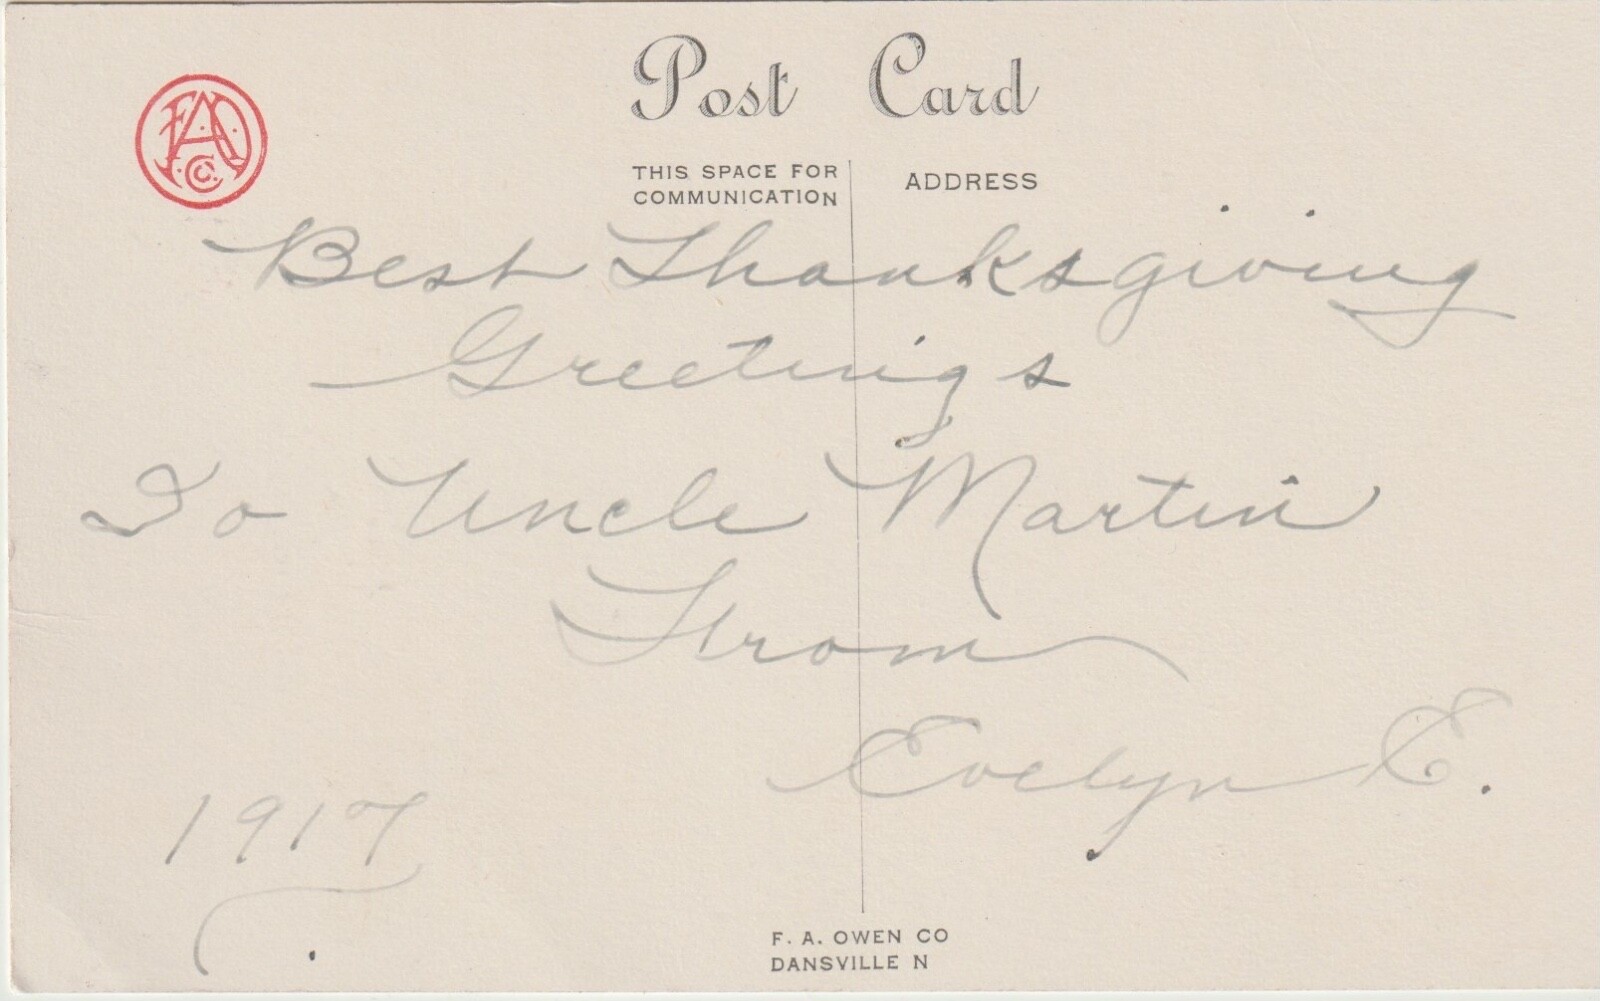 Post Card
FAO
Co.
THIS SPACE FOR
COMMUNICATION
ADDRESS
Best Thanksgiving
Greetings
To Uncle Martin
From
Evelyn E.
1917
F. A. OWEN CO
DANSVILLE N